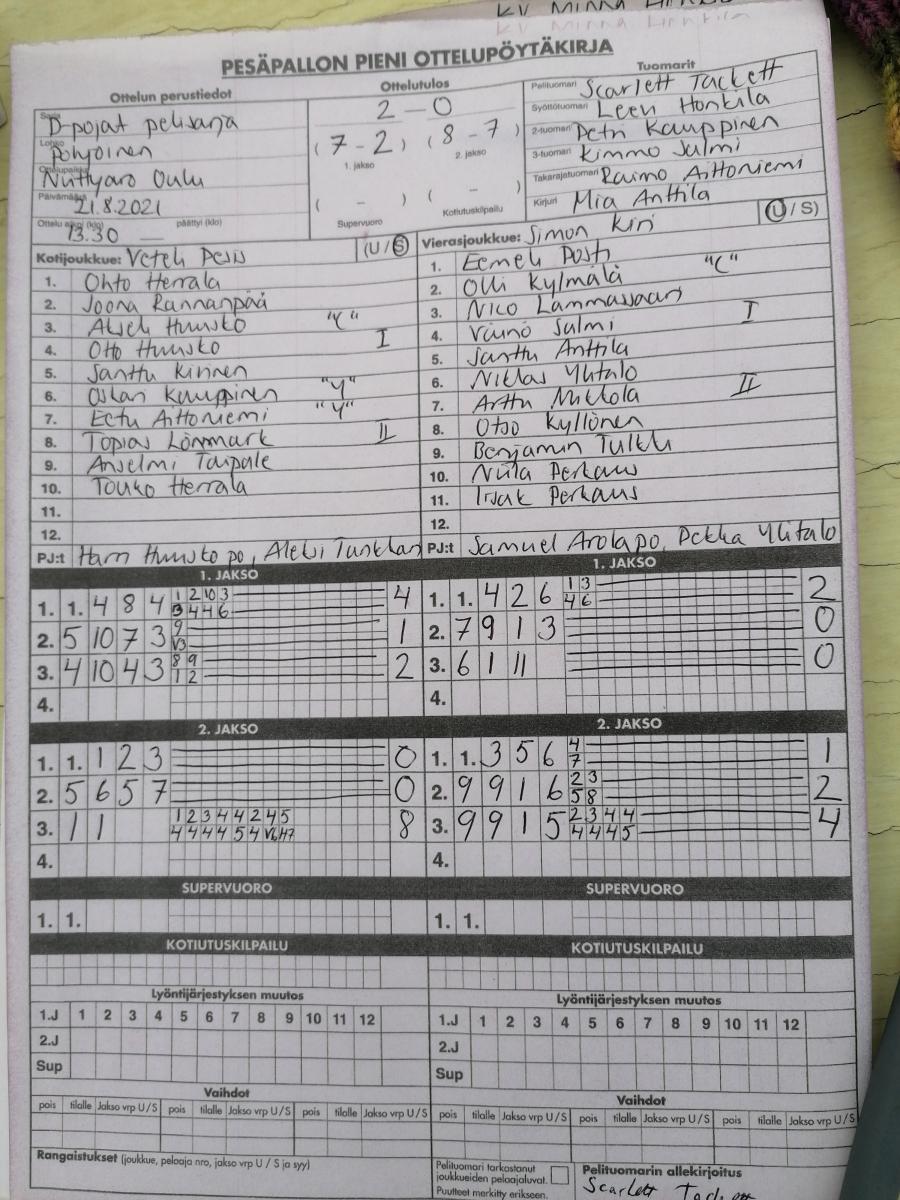 KV MINNA
PESÄPALLON PIENI OTTELUPÖYTÄKIRJA
Ottelun perustiedot
Sarja D-pojat pelisarja
Lohko pohjoinen
Ottelupaikka Niittyaro Oulu
Päivämäärä 21.8.2021
Ottelu alkoi (klo) 13.30 — päättyi (klo)
Ottelutulos
2 - 0
(7 - 2) (8 - 7)
1. jakso 2. jakso
( - ) ( - )
Supervuoro Kotiutuskilpailu
Tuomarit
Pelituomari Scarlett Tackett
Syöttötuomari Leevi Honkila
2-tuomari Petri Kauppinen
3-tuomari Kimmo Salmi
Takarajatuomari Raimo Aittoniemi
Kirjuri Mia Anttila
Kotijoukkue: Vetelin Pesis (U / S)
1. Ohto Herrala
2. Joona Rannanpää
3. Akseli Huusko "C"
4. Otto Huusko I
5. Santtu Kinnen
6. Oskari Kauppinen "Y"
7. Eetu Aittoniemi "Y"
8. Topias Lönnmark II
9. Anselmi Taipale
10. Touko Herrala
11.
12.
PJ:t Harri Huusko po, Aleksi Tunkkari
Vierasjoukkue: Simon Kiri (U / S)
1. Eemeli Posti
2. Olli Kylmälä "C"
3. Nico Lammassaari
4. Väinö Salmi I
5. Santtu Anttila
6. Niklas Ylitalo
7. Arttu Mikkola II
8. Otso Kyllönen
9. Benjamin Tulkku
10. Niila Perkaus
11. Iisak Perkaus
12.
PJ:t Samuel Arolapo, Pekka Ylitalo
1. JAKSO
1. 1. 4 8 4 1 2 10 3 4
3 4 4 6
2. 5 10 7 3 9 1
V3
3. 4 10 4 3 8 9 2
1 2
4.
1. JAKSO
1. 1. 4 2 6 1 3 2
4 6
2. 7 9 1 3 0
3. 6 1 11 0
4.
2. JAKSO
1. 1. 1 2 3 0
2. 5 6 5 7 0
3. 1 1 1 2 3 4 4 2 4 5 8
4 4 4 4 5 4 V6 H7
4.
2. JAKSO
1. 1. 3 5 6 4 1
7
2. 9 9 1 6 2 3 2
5 8
3. 9 9 1 5 2 3 4 4 4
4 4 4 5
4.
SUPERVUORO
1. 1.
SUPERVUORO
1. 1.
KOTIUTUSKILPAILU
KOTIUTUSKILPAILU
Lyöntijärjestyksen muutos
1.J 1 2 3 4 5 6 7 8 9 10 11 12
2.J
Sup
Lyöntijärjestyksen muutos
1.J 1 2 3 4 5 6 7 8 9 10 11 12
2.J
Sup
Vaihdot
pois tilalle Jakso vrp U / S pois tilalle Jakso vrp U / S pois tilalle Jakso vrp U / S
Vaihdot
pois tilalle Jakso vrp U / S pois tilalle Jakso vrp U / S pois tilalle Jakso vrp U / S
Rangaistukset (joukkue, pelaaja nro, jakso vrp U / S ja syy)
Pelituomari tarkastanut
joukkueiden pelaajaluvat.
Puutteet merkitty erikseen.
Pelituomarin allekirjoitus
Scarlett Tackett